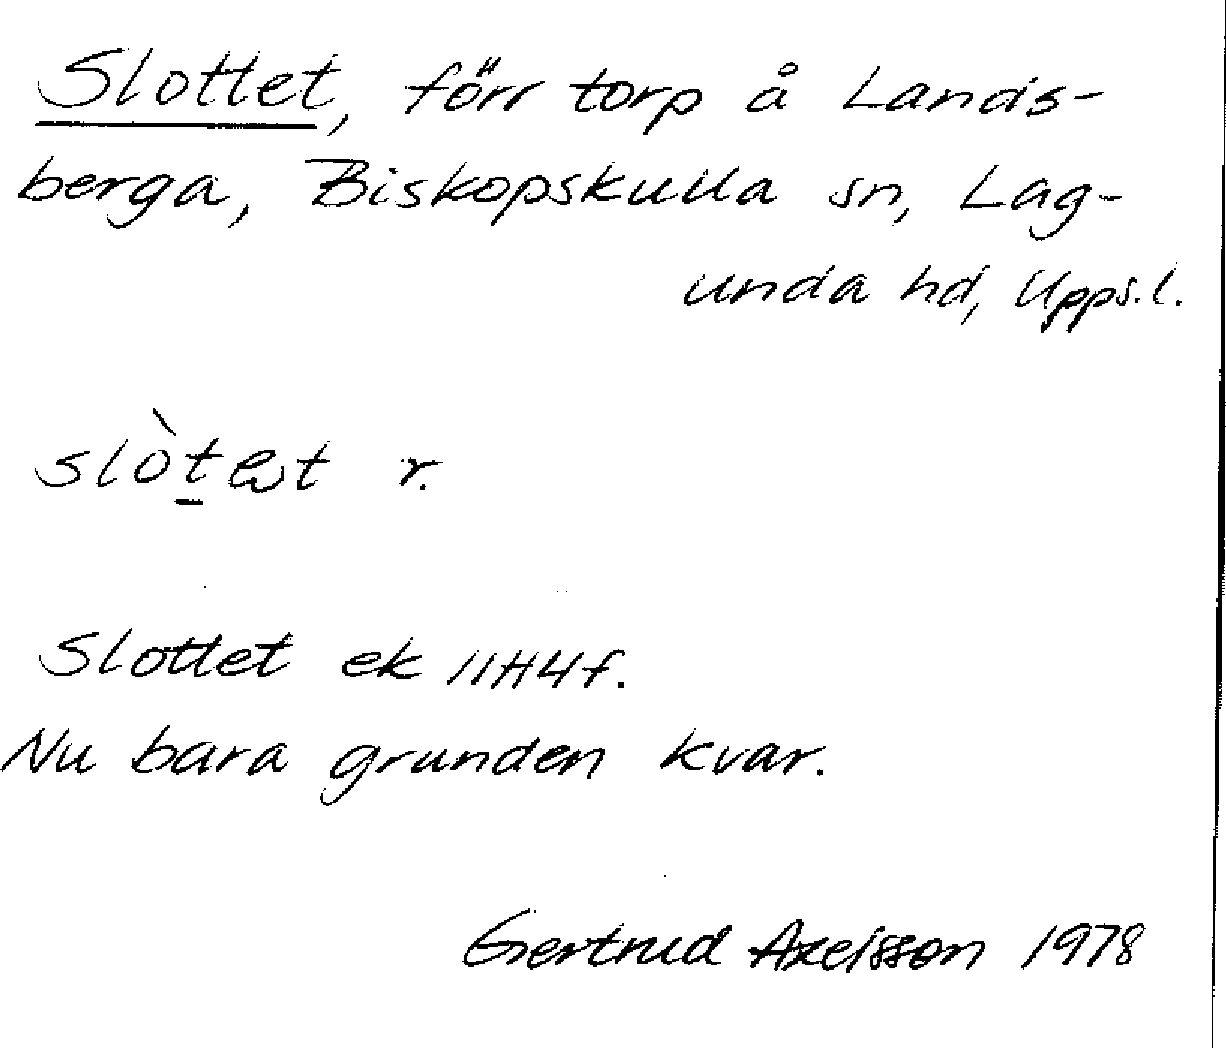 Slottet, förr torp å Lands-
berga, Biskopskulla sn, Lag-
unda hd, Upps.l.
r.
Slottet ek 11H4f.
Nu bara grunden kvar.
Gertrud Axelsson 1978